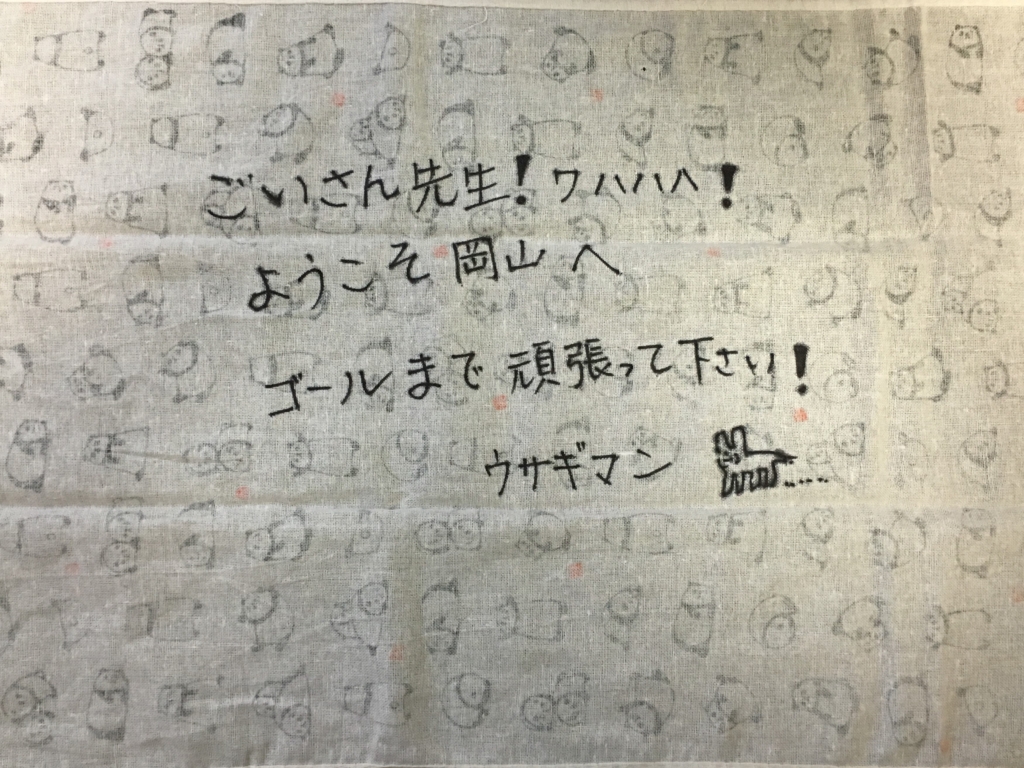 ごいさん先生！ワハハハ！
ようこそ岡山へ
ゴールまで頑張って下さい！
ウサギマン